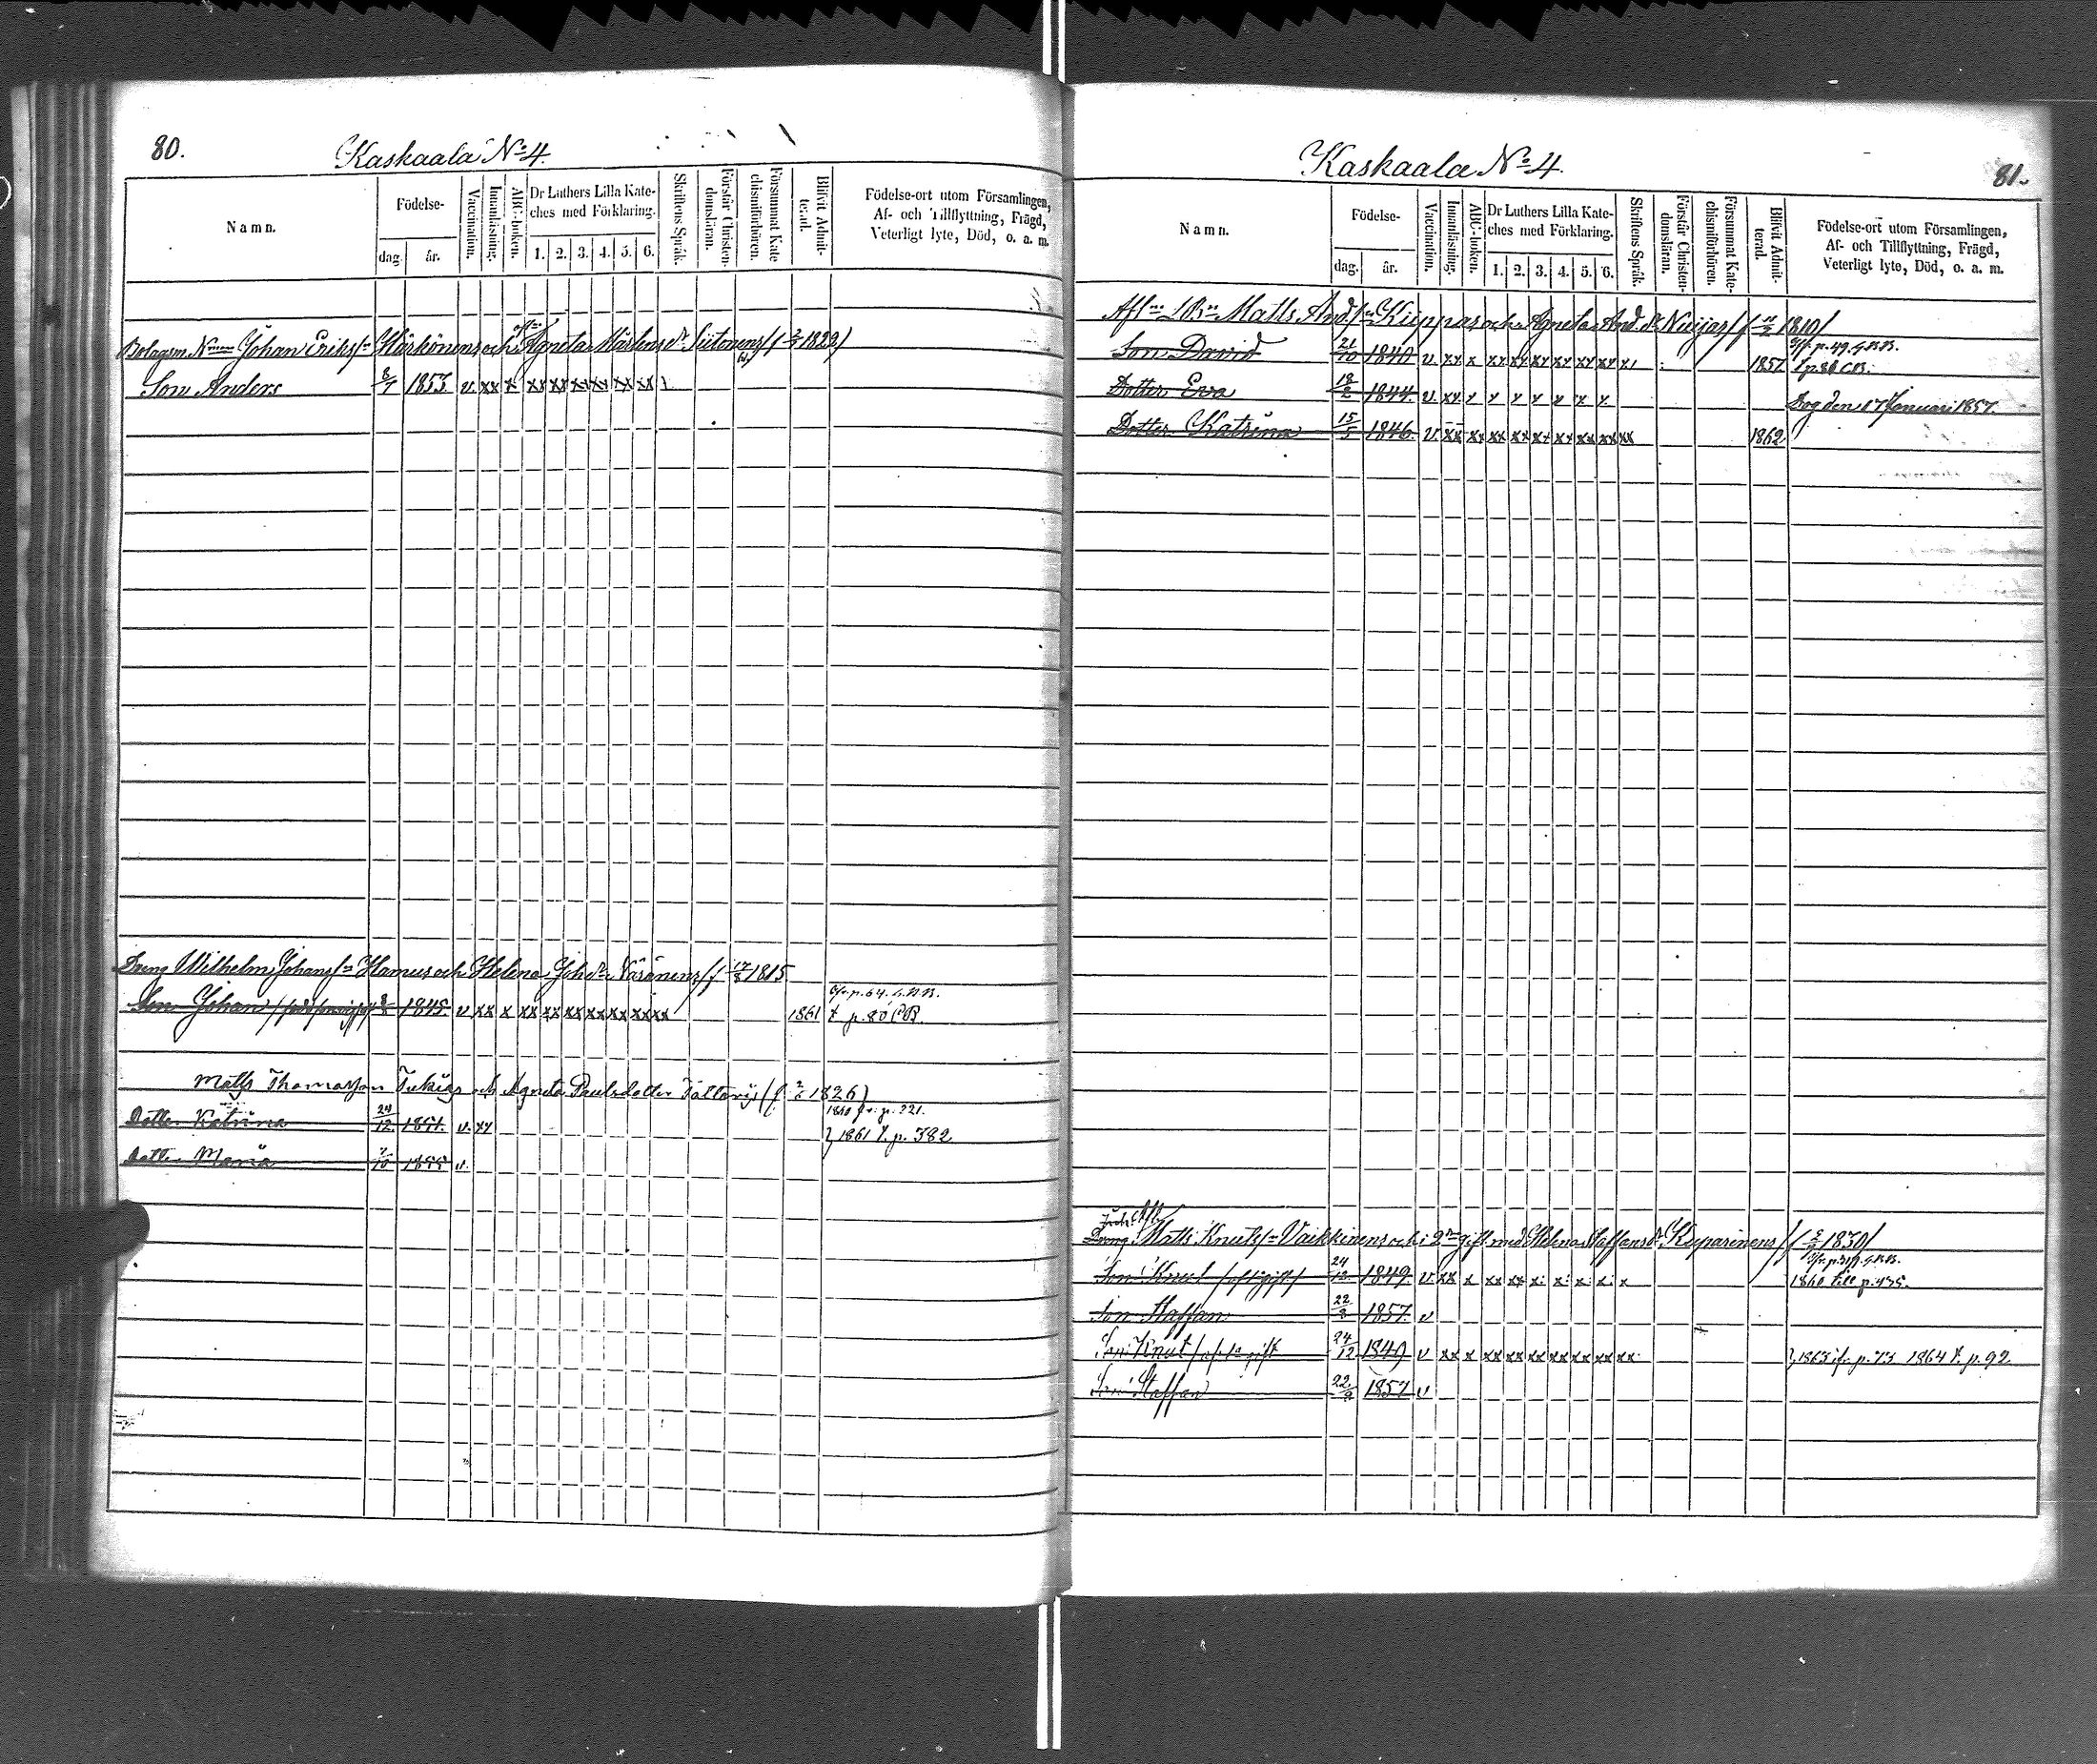 80.
Kaskaala No 4.
Namn.
Födelse-
dag.
år.
Vaccination.
Innanläsning.
ABC-boken.
Dr Luthers Lilla Kate-
ches med Förklaring.
1. 2. 3. 4. 5. 6.
Skriftens Språk.
Förstår Christen-
domsläran.
Försummat Kate
chismiförhören.
Blifvit Admit-
terad.
Födelse-ort utom Församlingen,
Af- och Tillflyttning, Frägd,
Veterligt lyte, Död, o. a. m.
Johan Eriks Härkönens och Agneta Mårtens dr
Son Anders 8/7 1853 v xx x xx xx xx xx xx xx
Dreng Wilhelm Johans Hamus och Helena Joh dr Väsänens 1815
Son Johan 1845 v xx x xx xx xx xx xx xx xx 1861 t p. 80 CB.
Matts Thomasson Tukias och Agneta Paulsdotter 1826)
1860 fr. p. 221.
Dotter Katrina 24/12 1851 v. xx } 1861 t. p. 382
Dotter Maria 1855 v.
Kaskaala No 4.
81.
Namn.
Födelse-
dag.
år.
Vaccination.
Innanläsning.
ABC-boken.
Dr Luthers Lilla Kate-
ches med Förklaring.
1. 2. 3. 4. 5. 6.
Skriftens Språk.
Förstår Christen-
domsläran.
Försummat Kate-
chismiförhören.
Blifvit Admit-
terad.
Födelse-ort utom Församlingen,
Af- och Tillflyttning, Frägd,
Veterligt lyte, Död, o. a. m.
Matts And Kuppas och Agneta And. dr Nuijas 1810/
Son David 21/10 1840 v xx x xx xx xx xx xx xx 1857 t p 86 CB.
Dotter Eva 18/2 1844 v xx x x x x x x x Dog den 17 Januari 1857.
Dotter Katrina 15/5 1846 v xx xx xx xx xx xx xx xx xx 1862
Dreng Matts Knuts Vaikkinens och i 2 gift med Helena Staffans dr Kuparinens 1830/
Son Knut 24/12 1849 v xx x xx xx x x x x x 1860 till p. 435.
Son Staffan 1857 v
Son Knut af 1a gift 24/12 1849 v xx x xx xx xx xx xx xx xx } 1863 ifr p. 73 1864 t. p. 92
Son Staffan 1857 v